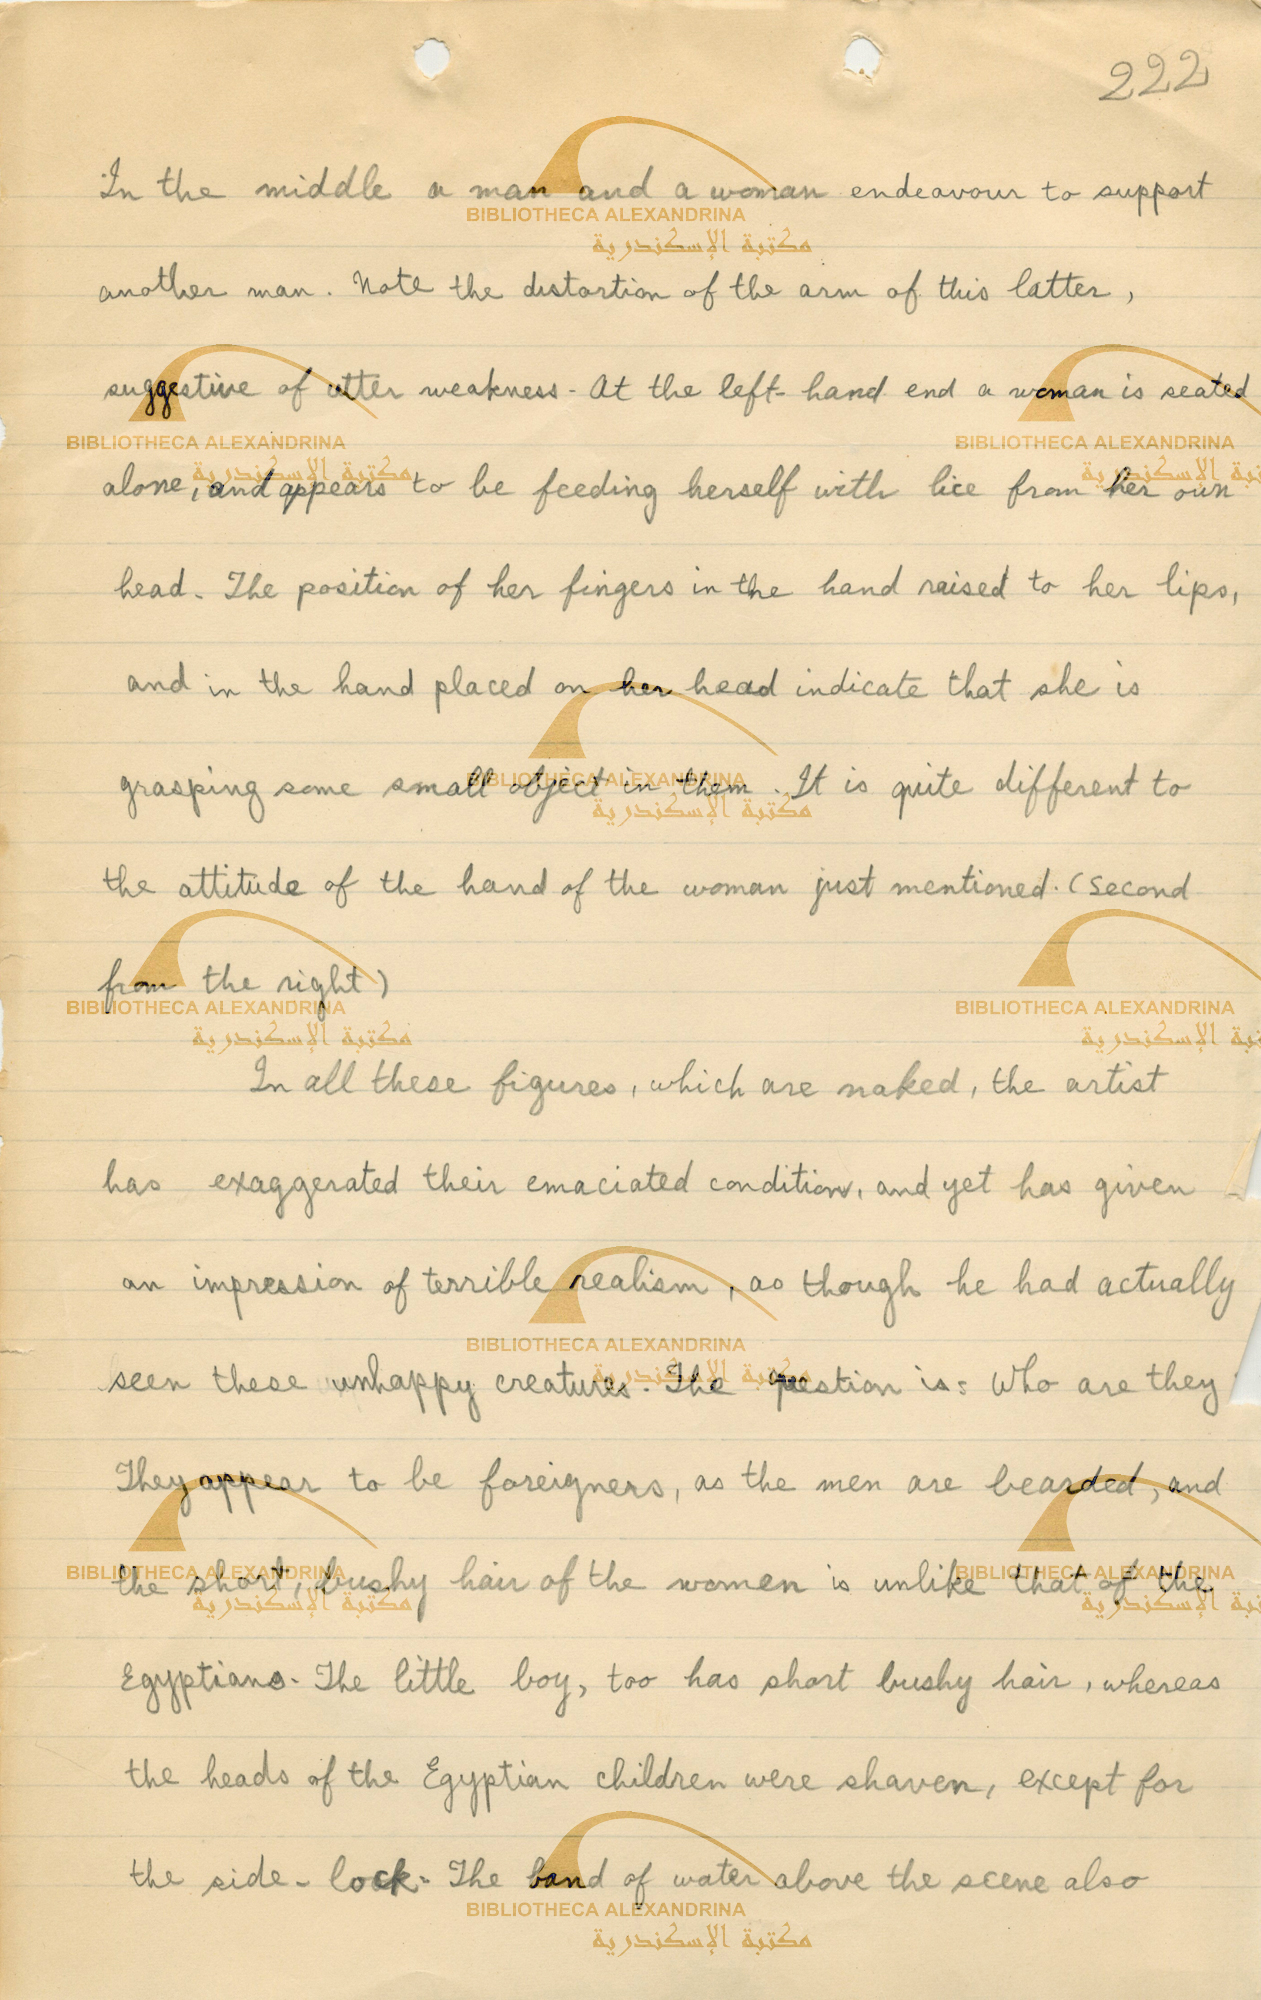 222
In the middle a man and a woman endeavour to support
another man. Note the distortion of the arm of this latter,
suggestive of utter weakness - At the left-hand end a woman is seated
alone, and appears to be feeding herself with lice from her own
head. The position of her fingers in the hand raised to her lips,
and in the hand placed on her head indicate that she is
grasping some small object in them. It is quite different to
the attitude of the hand of the woman just mentioned. (Second
from the right)
In all these figures, which are naked, the artist
has exaggerated their emaciated condition, and yet has given
an impression of terrible realism, as though he had actually
seen these unhappy creatures. The question is: Who are they
They appear to be foreigners, as the men are bearded, and
the short, bushy hair of the women is unlike that of the
Egyptians. The little boy, too has short bushy hair, whereas
the heads of the Egyptian children were shaven, except for
the side-lock. The band of water above the scene also
BIBLIOTHECA ALEXANDRINA
مكتبة الإسكندرية
BIBLIOTHECA ALEXANDRINA
مكتبة الإسكندرية
BIBLIOTHECA ALEXANDRINA
مكتبة الإسكندرية
BIBLIOTHECA ALEXANDRINA
مكتبة الإسكندرية
BIBLIOTHECA ALEXANDRINA
مكتبة الإسكندرية
BIBLIOTHECA ALEXANDRINA
مكتبة الإسكندرية
BIBLIOTHECA ALEXANDRINA
مكتبة الإسكندرية
BIBLIOTHECA ALEXANDRINA
مكتبة الإسكندرية
BIBLIOTHECA ALEXANDRINA
مكتبة الإسكندرية
BIBLIOTHECA ALEXANDRINA
مكتبة الإسكندرية